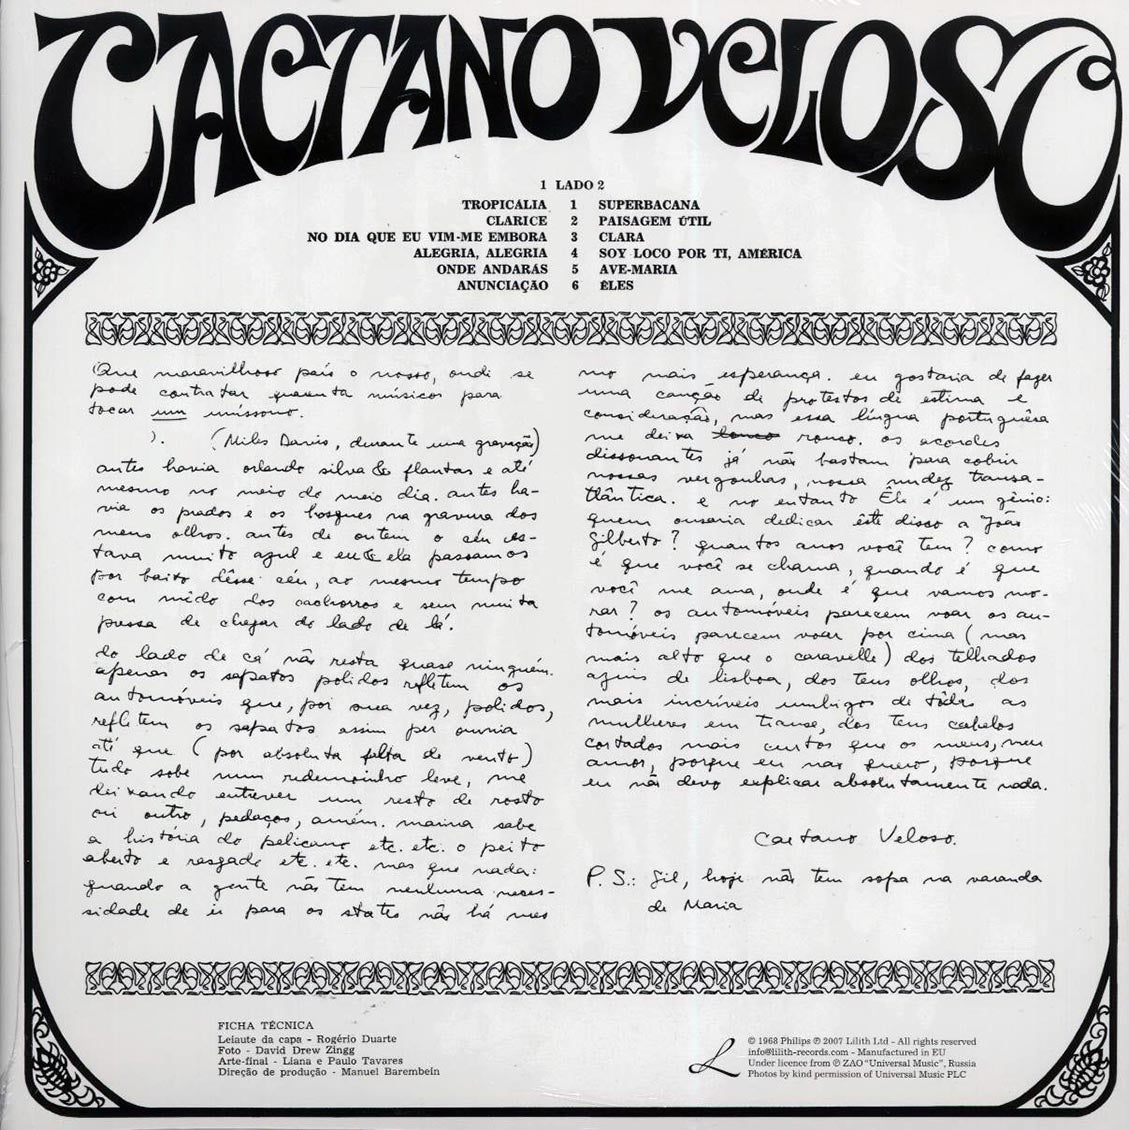 CAETANO VELOSO
1 LADO 2
TROPICÁLIA 1 SUPERBACANA
CLARICE 2 PAISAGEM ÚTIL
NO DIA QUE EU VIM-ME EMBORA 3 CLARA
ALEGRIA, ALEGRIA 4 SOY LOCO POR TI, AMÉRICA
ONDE ANDARÁS 5 AVE-MARIA
ANUNCIAÇÃO 6 ÊLES
Que maravilhoso país o nosso, onde se
pode contratar quarenta músicos para
tocar um uníssono.
). (Miles Davis, durante uma gravação)
antes havia orlando silva & flautas e até
mesmo no meio do meio dia. antes ha-
via os prados e os bosques na gravura dos
meus olhos. antes de ontem o céu es-
tava muito azul e eu & ela passamos
por baixo dêsse céu, ao mesmo tempo
com mêdo dos cachorros e sem muita
pressa de chegar do lado de lá.
do lado de cá não resta quase ninguém.
apenas os sapatos polidos refletem os
automóveis que, por sua vez, polidos,
refletem os sapatos assim per omnia
até que (por absoluta falta de vento)
tudo sobe num redemoinho leve, me
deixando entrever um resto de rosto
ou outro, pedaços, amém. marina sabe
a história do pelicano etc. etc. o peito
aberto e rasgado etc. etc. mas que nada:
quando a gente não tem nenhuma neces-
sidade de ir para os states não há mes
mo mais esperança. eu gostaria de fazer
uma canção de protestos de estima e
consideração, mas essa língua portuguêsa
me deixa rouco. os acordes
dissonantes já não bastam para cobrir
nossas vergonhas, nossa nudez transa-
tlântica. e no entanto Êle é um gênio:
quem ousaria dedicar êste disso a João
Gilberto? quantos anos você tem? como
é que você se chama, quando é que
você me ama, onde é que vamos mo-
rar? os automóveis parecem voar os au-
tomóveis parecem voar por cima (mas
mais alto que o caravelle) dos telhados
azuis de lisboa, dos teus olhos, dos
mais incríveis umbigos de tôdas as
mulheres em transe, dos teus cabelos
cortados mais curtos que os meus, meu
amor, porque eu não quero, porque
eu não devo explicar absolutamente nada.
Caetano Veloso.
P.S.: Gil, hoje não tem sopa na varanda
de Maria
FICHA TÉCNICA
Leiaute da capa - Rogério Duarte
Foto - David Drew Zingg
Arte-final - Liana e Paulo Tavares
Direção de produção - Manuel Barembein
L
© 1968 Philips ℗ 2007 Lilith Ltd - All rights reserved
info@lilith-records.com - Manufactured in EU
Under licence from ℗ ZAO "Universal Music", Russia
Photos by kind permission of Universal Music PLC